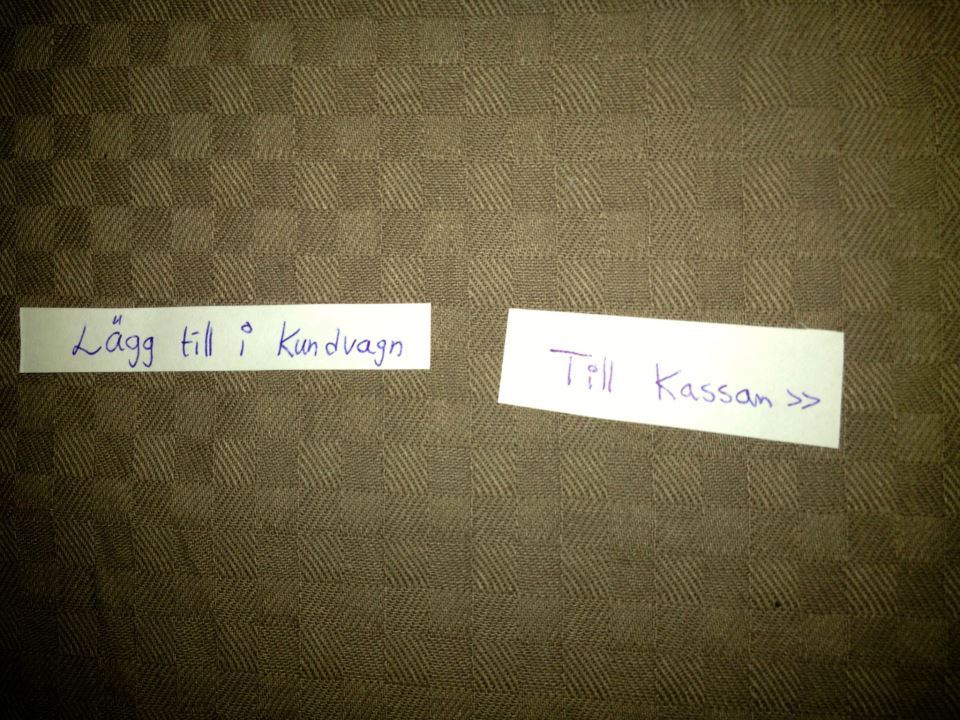 Lägg till i Kundvagn
Till Kassan >>